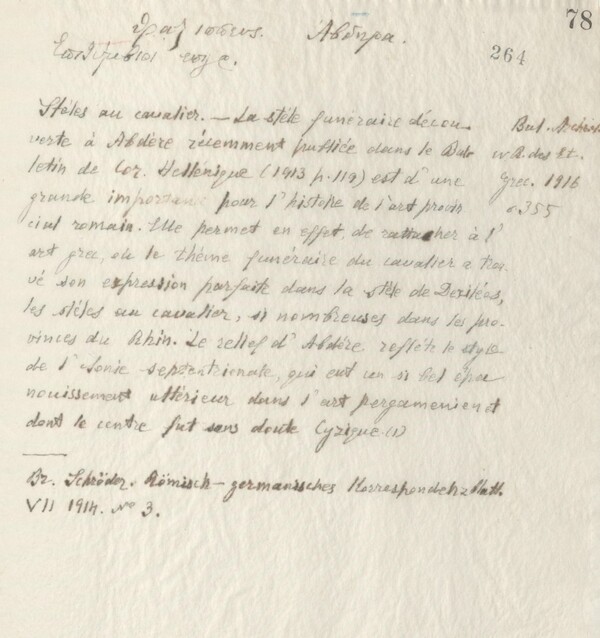 78
Αβδηρα.
264
Stèles au cavalier. — La stèle funéraire décou-
verte à Abdère récemment publiée dans le Bul-
letin de Cor. Hellenique (1913 p. 119) est d'une
grande importance pour l'histoire de l'art provin
cial romain. Elle permet en effet, de rattacher à l'
art grec, où le thème funéraire du cavalier a trou
vé son expression parfaite dans la stèle de Dexiléos,
les stèles au cavalier, si nombreuses dans les pro-
vinces du Rhin. Le relief d'Abdère reflète le style
de l'Ionie septentrionale, qui eut un si bel épa
nouissement ultérieur dans l'art pergamenien et
dont le centre fut sans doute Cyzique. (1)
Bul. Archéol
R. des Et.
Grec. 1916
σ. 355
Br. Schröder. Römisch-germanisches Korrespondenzblatt.
VII 1914. No 3.